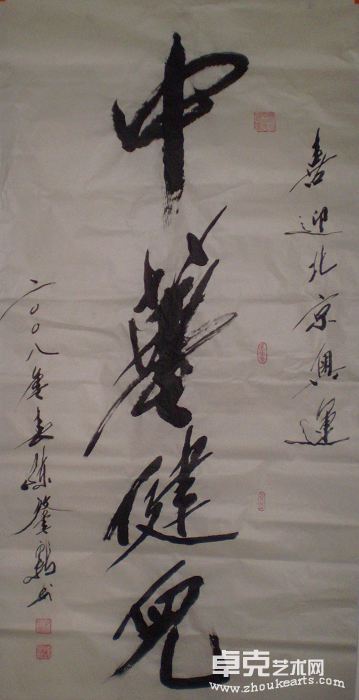 喜迎北京奥運
中華健兒
二〇〇八年春
书
卓克艺术网
www.zhoukearts.com